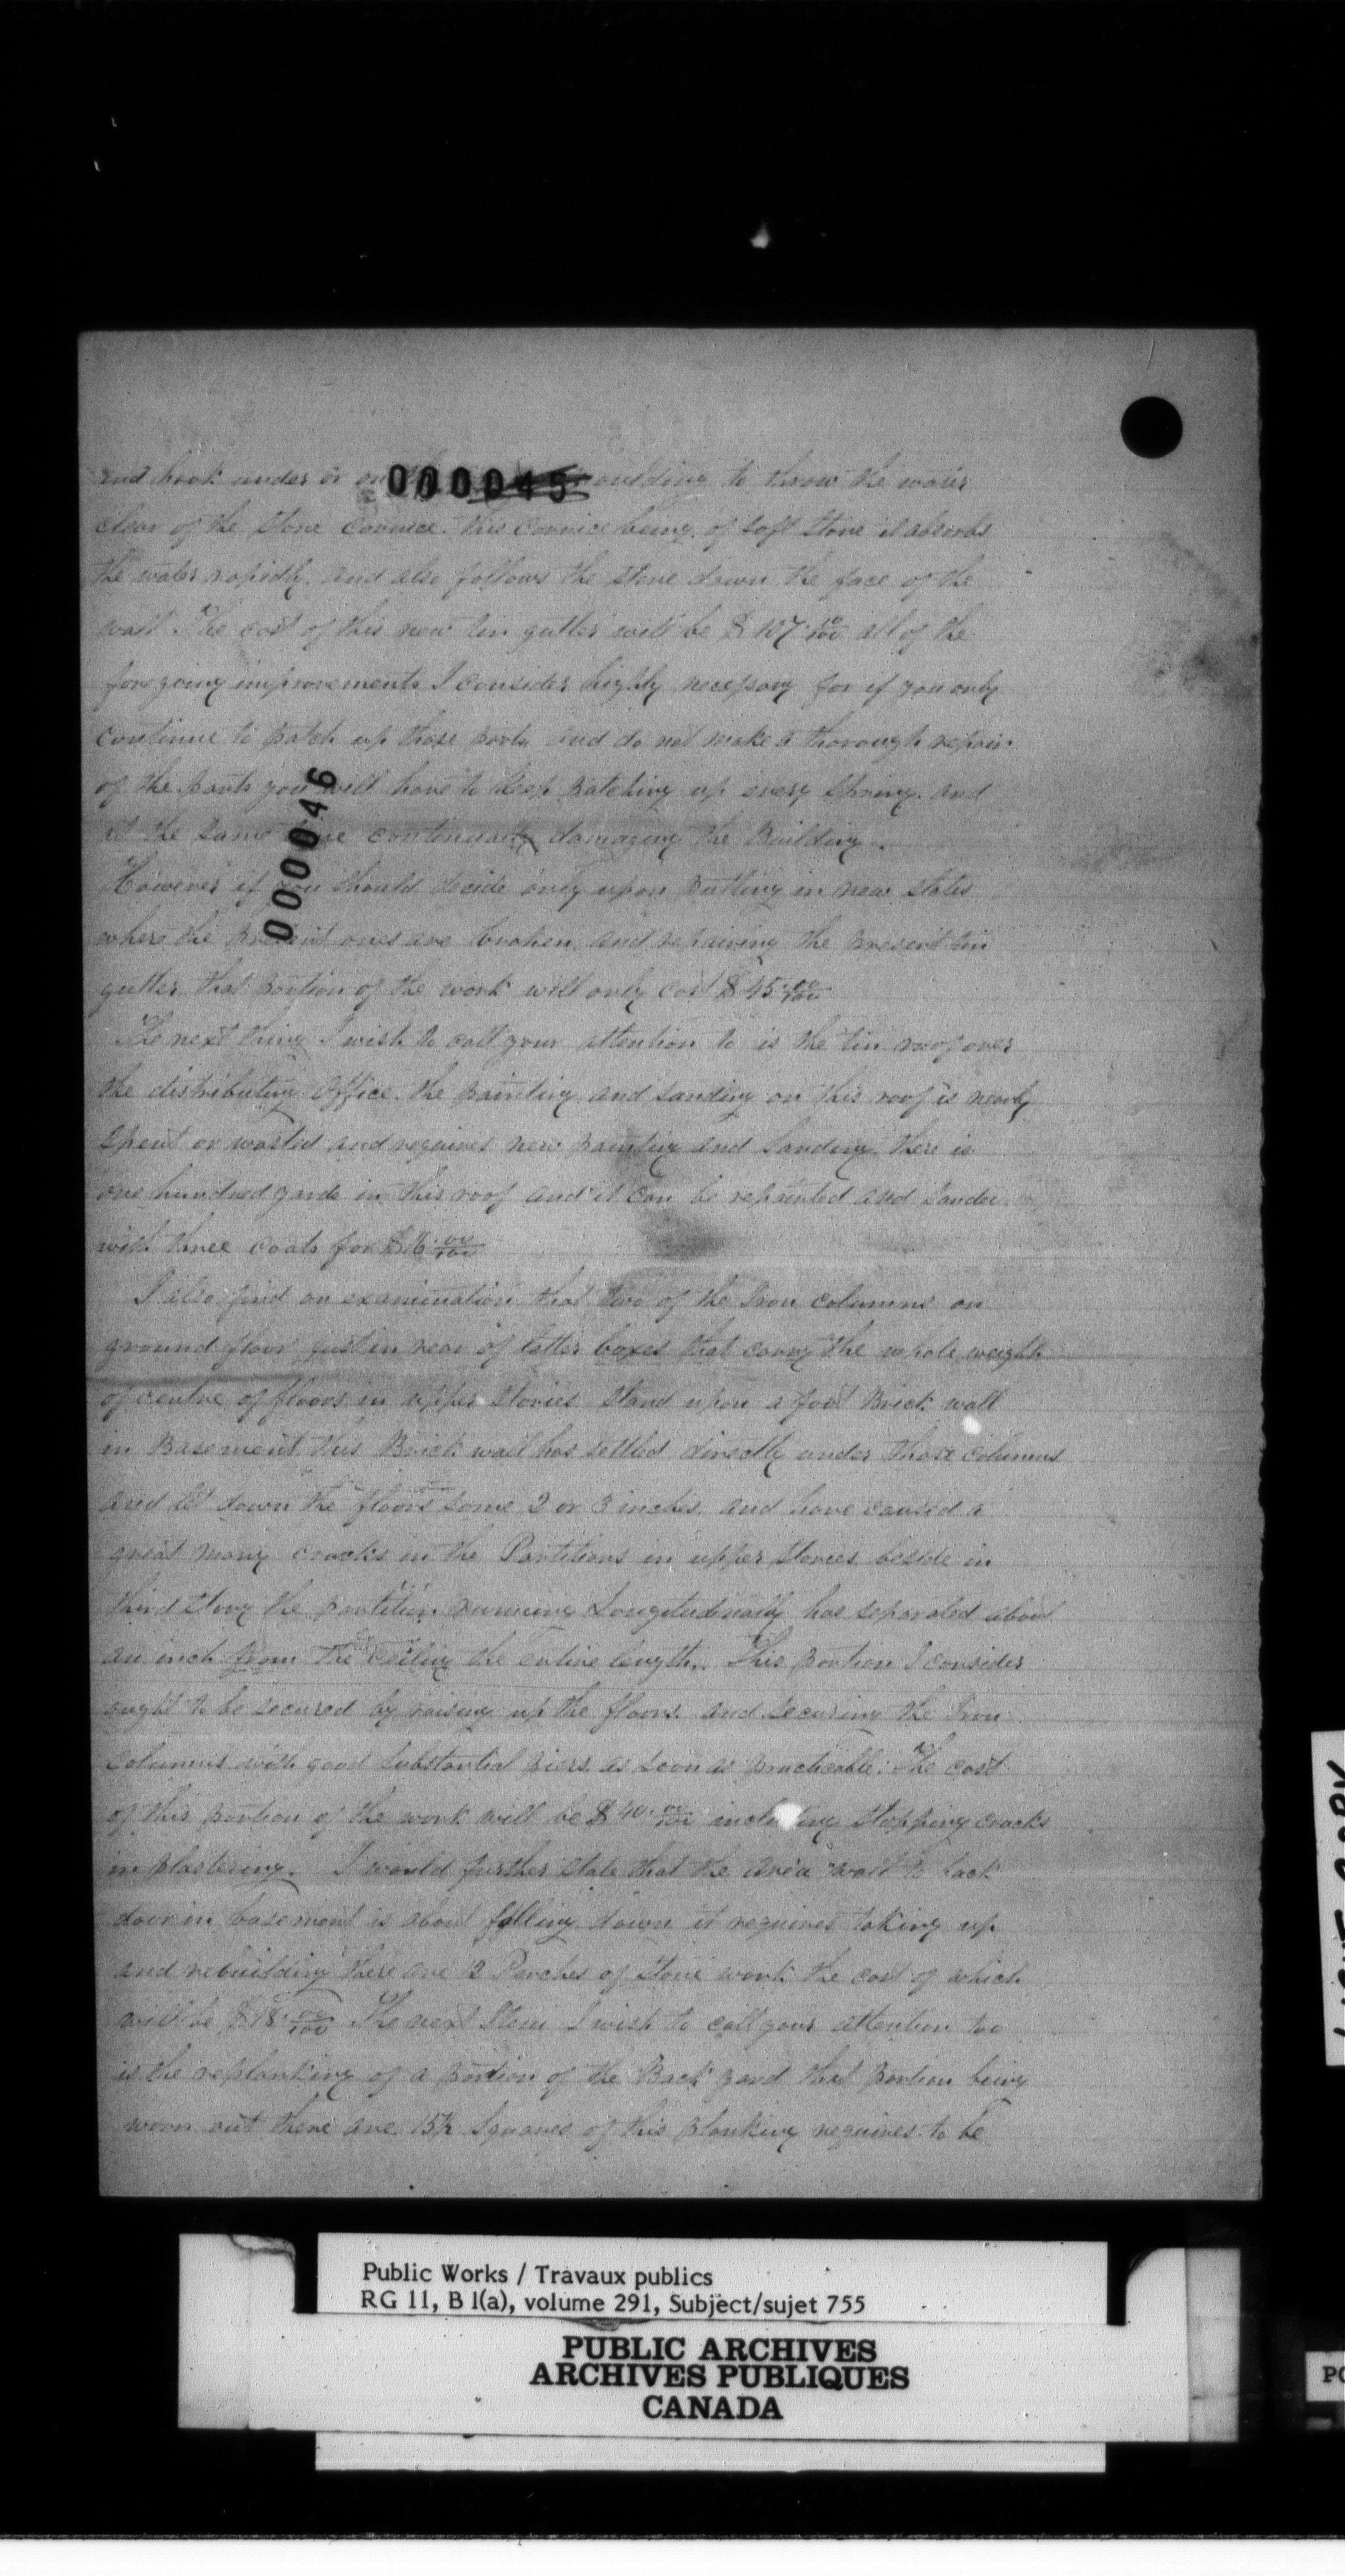 and hook under or on 000045 moulding to throw the water
clear of the Stone Cornice. this Cornice being of soft Stone it absorbs
the water rapidly. and also follows the stone down the face of the
wall. The cost of this new tin gutter will be $107 all of the
foregoing improvements I consider highly necessary for if you only
continue to patch up those parts and do not make a thorough repair
of the parts you will have to keep patching up every Spring. and
at the same time continually damaging the Building.
000046
However if you should decide only upon putting in new slates
where the present ones are broken and repairing the present tin
gutter that portion of the work will only cost $45 00/100
The next thing I wish to call your attention to is the tin roof over
the distributing Office. the painting and sanding on this roof is nearly
spent or wasted and requires new painting and sanding there is
one hundred yards in this roof and it can be repainted and sanded
with three coats for 00/100
I also find on examination that two of the Iron columns on
ground floor just in rear of letter boxes that carry the whole weight
of centre of floors in upper stories stand upon a foot Brick wall
in Basement this Brick wall has settled directly under those columns
and let down the floors some 2 or 3 inches. and have caused a
great many cracks in the Partitions in upper stories beside in
third story the partition running Longitudinally has separated about
an inch from the ceiling the entire length. This portion I consider
ought to be secured by raising up the floors and securing the Iron
Columns with good substantial piers as soon as practicable. The cost
of this portion of the work will be $40 00/100 including stopping cracks
in plastering. I would further state that the area wall to back
door in basement is about falling down it requires taking up
and rebuilding there are 12 Perches of stone work the cost of which
will be $18 00/100 The next Item I wish to call your attention too
is the replanking of a portion of the Back yard that portion being
worn out there are 15½ Squares of this planking requires to be
Public Works / Travaux publics
RG 11, B 1(a), volume 291, Subject/sujet 755
PUBLIC ARCHIVES
ARCHIVES PUBLIQUES
CANADA